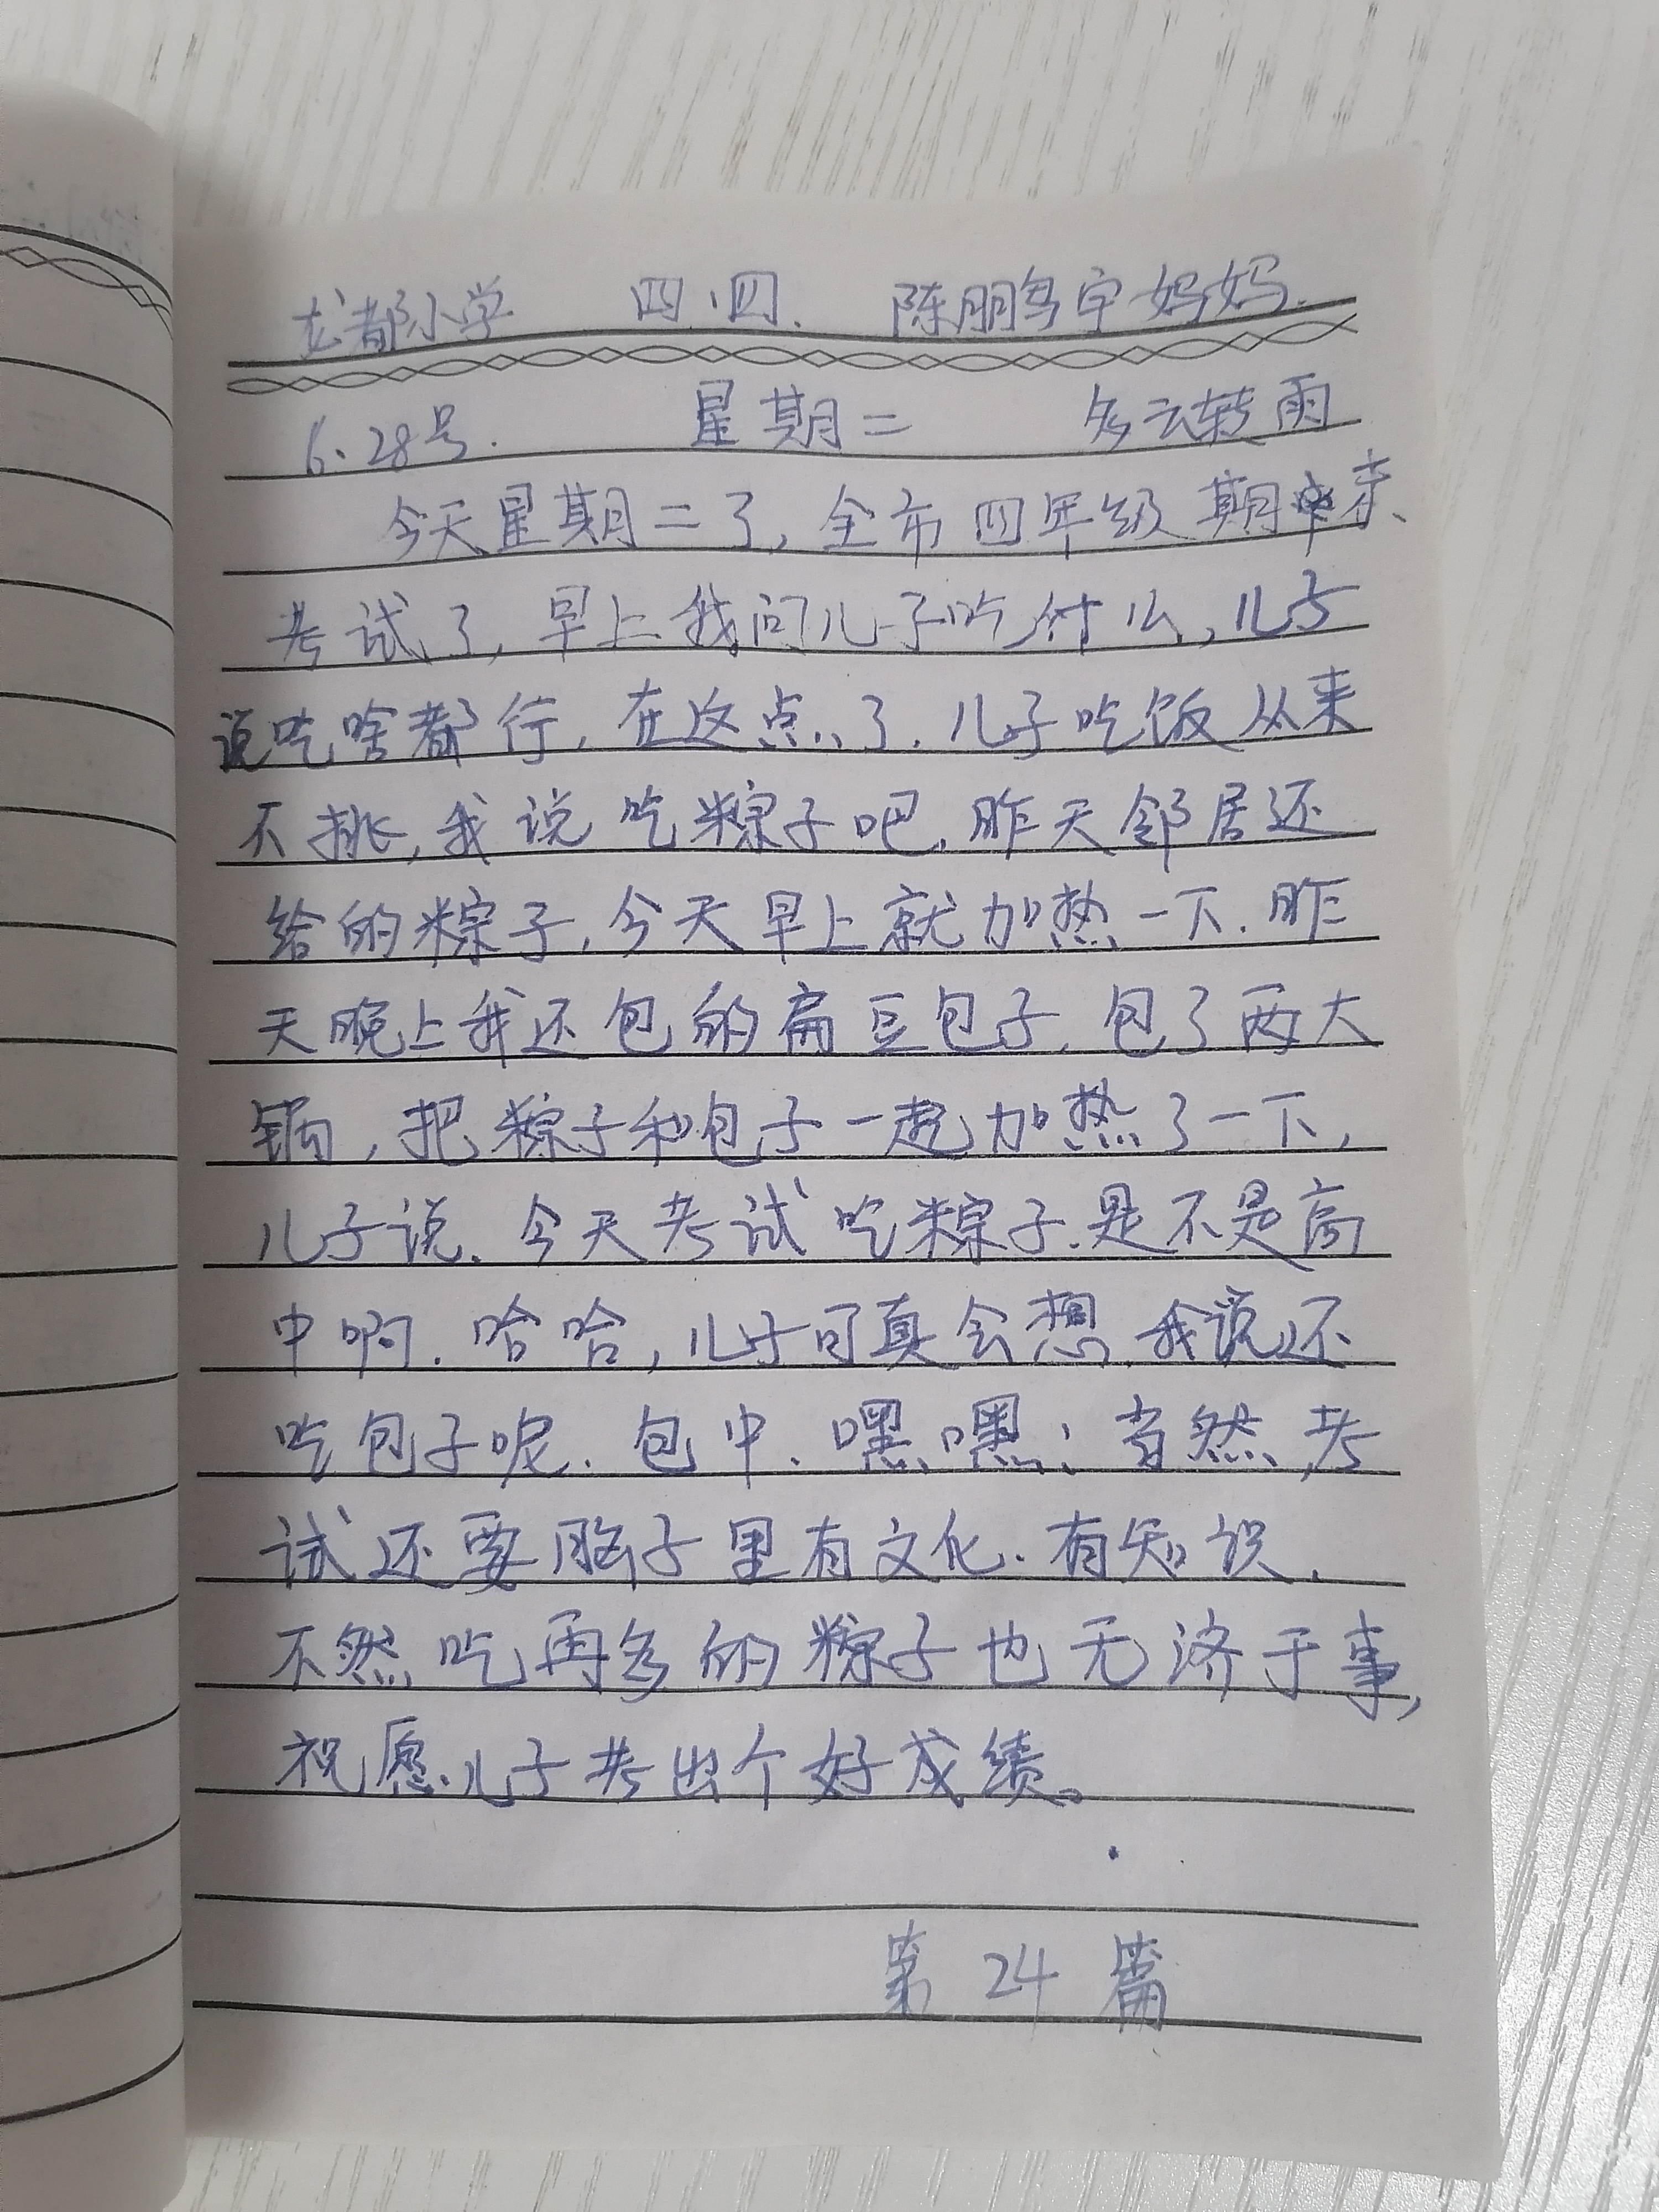 龙都小学 四.四. 陈鹏宇妈妈.
6.28号. 星期二 多云转雨
今天星期二了,全市四年级期末
考试了,早上我问儿子吃什么,儿子
说吃啥都行,在这点了.儿子吃饭从来
不挑,我说吃粽子吧.昨天邻居还
给的粽子,今天早上就加热一下.昨
天晚上我还包的扁豆包子,包了两大
锅,把粽子和包子一起加热了一下,
儿子说.今天考试吃粽子.是不是高
中啊.哈哈,儿子可真会想,我说还
吃包子呢.包中.嘿嘿;当然,考
试还要脑子里有文化.有知识.
不然吃再多的粽子也无济于事,
祝愿儿子考出个好成绩。
第24篇